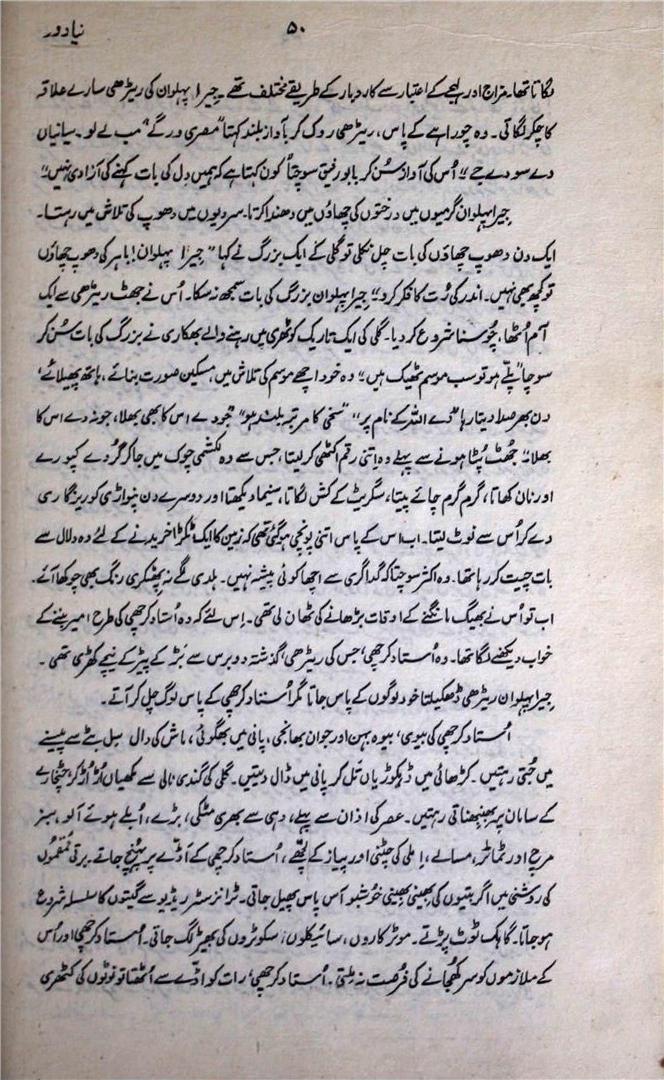 ۵۰
نیا دور
لگاتا تھا۔ مزاج اور لہجے کے اعتبار سے کاروبار کے طریقے مختلف تھے۔ جیرا پہلوان کی ریڑھی سارے علاقہ
کا چکر لگاتی۔ وہ چوراہے کے پاس، ریڑھی روک کر بآواز بلند کہتا "مصری ورگے" مب لے لو۔ سیانیاں
دے سودے جے" اُس کی آواز سُن کر بابو رفیق سوچتا "کون کہتا ہے کہ ہمیں دِل کی بات کہنے کی آزادی نہیں"
جیرا پہلوان گرمیوں میں درختوں کی چھاؤں میں دھندا کرتا۔ سردیوں میں دھوپ کی تلاش میں رہتا۔
ایک دن دھوپ چھاؤں کی بات چل نکلی تو گلی کے ایک بزرگ نے کہا "جیرا پہلوان! باہر کی دھوپ چھاؤں
تو کچھ بھی نہیں۔ اندر کی رُت کا فکر کرو" جیرا پہلوان بزرگ کی بات سمجھ نہ سکا۔ اُس نے جھٹ ریڑھی سے ایک
آم اُٹھا، چُوسنا شروع کر دیا۔ گلی کی ایک تاریک کوٹھری میں رہنے والے بھکاری نے بزرگ کی بات سُن کر
سوچا "پلّے ہو تو سب موسم ٹھیک ہیں" وہ خود اچھے موسم کی تلاش میں، مسکین صورت بنائے، ہاتھ پھیلائے،
دن بھر صدا دیتا رہا "دے اللہ کے نام پر" "سخی کا مرتبہ بلند ہو" "جو دے اس کا بھی بھلا، جو نہ دے اس کا
بھلا" جُھٹ پُٹا ہونے سے پہلے وہ اتنی رقم اکٹھی کر لیتا، جس سے وہ لکشمی چوک میں جا کر گُردے کپورے
اور نان کھاتا، گرم گرم چائے پیتا، سگریٹ کے کش لگاتا، سنیما دیکھتا اور دوسرے دن پنواڑی کو ریزگاری
دے کر اُس سے نوٹ لیتا۔ اب اس کے پاس اتنی پونجی ہو گئی تھی کہ زمین کا ایک ٹکڑا خریدنے کے لئے وہ دلال سے
بات چیت کر رہا تھا۔ وہ اکثر سوچتا کہ گداگری سے اچھا کوئی پیشہ نہیں۔ ہلدی لگے نہ پھٹکری رنگ بھی چوکھا آئے۔
اب تو اُس نے بھیک مانگنے کے اوقات بڑھانے کی ٹھان لی تھی۔ اِس لئے کہ وہ اُستاد کرچھی کی طرح امیر بننے کے
خواب دیکھنے لگا تھا۔ وہ اُستاد کرچھی، جس کی ریڑھی، گذشتہ دو برس سے بَڑ کے پیڑ کے نیچے کھڑی تھی۔
جیرا پہلوان ریڑھی ڈھکیلتا خود لوگوں کے پاس جاتا مگر اُستاد کرچھی کے پاس لوگ چل کر آتے۔
اُستاد کرچھی کی بیوی، بیوہ بہن اور جوان بھانجی، پانی میں بھگوئی، ماش کی دال سِل بٹے سے پیسنے
میں جُتی رہتیں۔ کڑھائی میں ڈبکوڑیاں تَل کر پانی میں ڈال دیتیں۔ گلی کی گندی نالی سے مکھیاں اُڑ اُڑ کر، چٹخارے
کے سامان پر بھنبھناتی رہتیں۔ عصر کی اذان سے پہلے، دہی سے بھری مٹکی، بڑے، اُبلے ہوئے آلو، سبز
مرچ اور ٹماٹر، مسالے، اِملی کی چٹنی اور پیاز کے لچھے، اُستاد کرچھی کے اڈّے پر پہنچ جاتے۔ برقی قمقموں
کی روشنی میں اگر بتیوں کی بھینی بھینی خوشبو آس پاس پھیل جاتی۔ ٹرانزسٹر ریڈیو سے گیتوں کا سلسلہ شروع
ہو جاتا۔ گاہک ٹوٹ پڑتے۔ موٹر کاروں، سائیکلوں، سکوٹروں کی بھیڑ لگ جاتی۔ اُستاد کرچھی اور اُس
کے ملازموں کو سر کھجانے کی فُرصت نہ مِلتی۔ اُستاد کرچھی، رات کو اڈّے سے اُٹھتا تو نوٹوں کی گٹھری